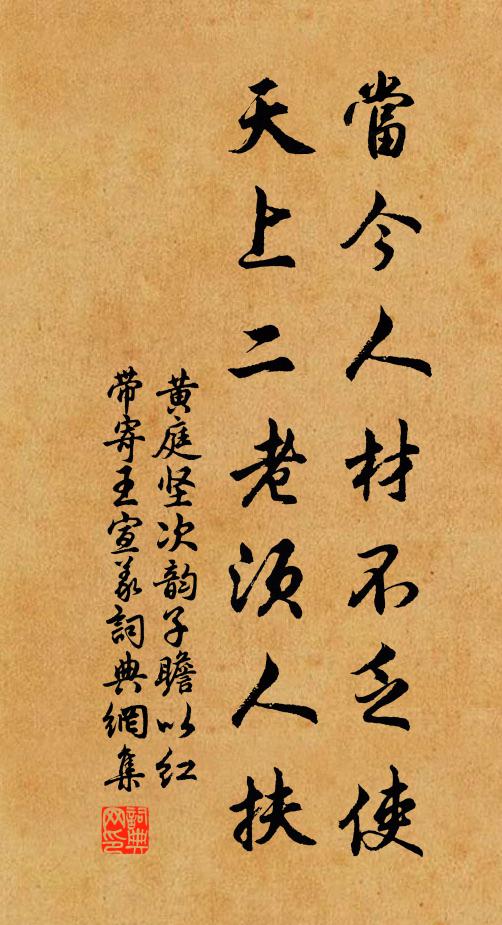 當今人材不乏使
天上二老須人扶
黄庭坚次韵子瞻以红
带寄王宣义詞典網集
詞典
网印